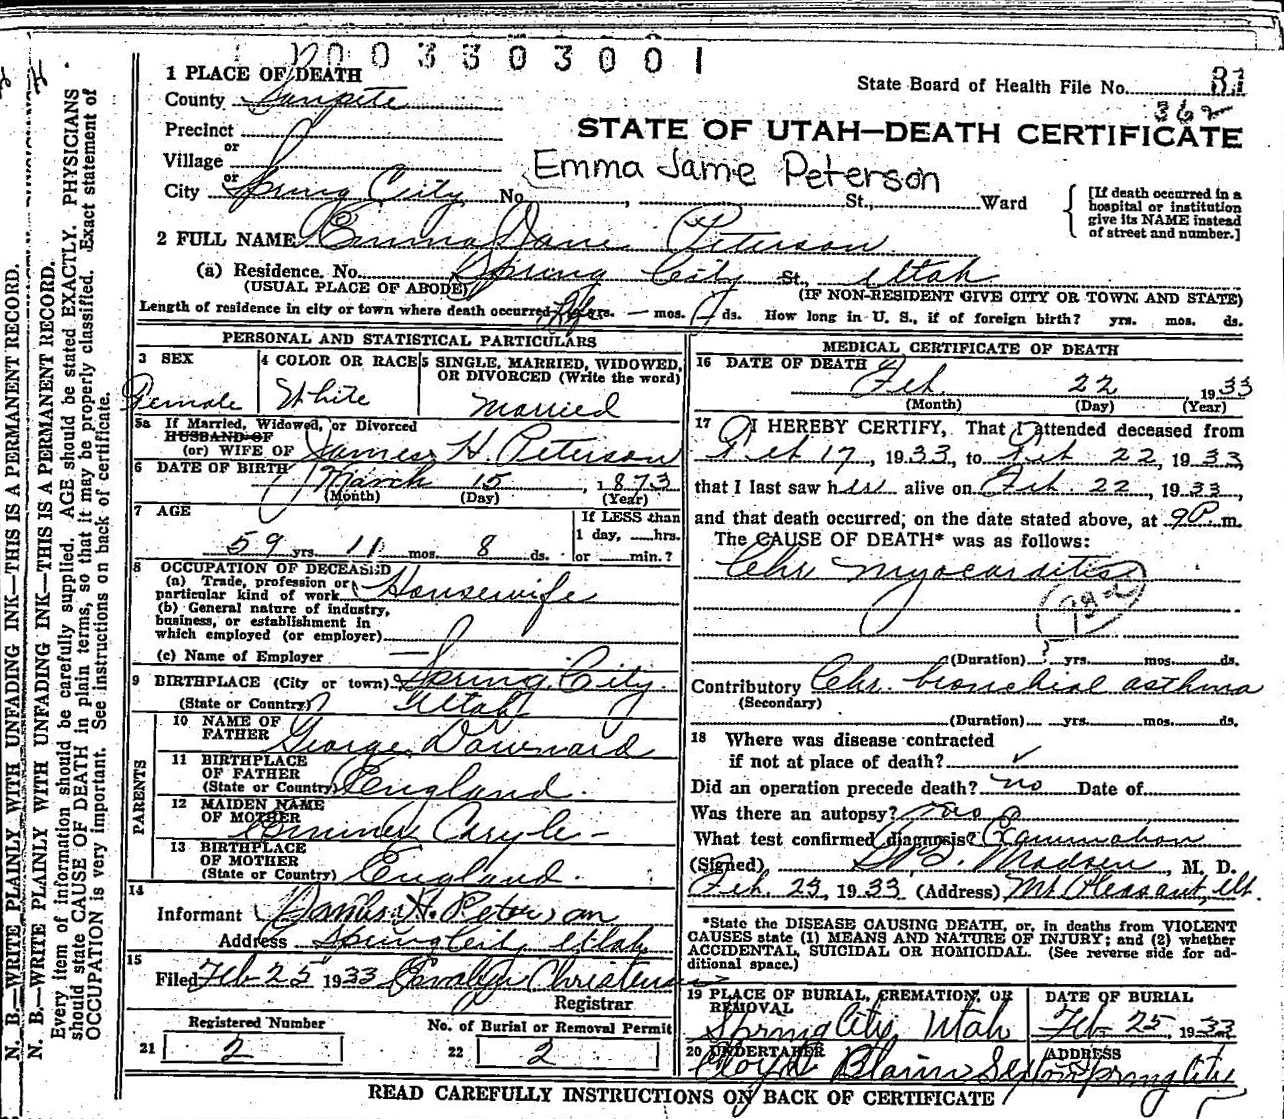 003303001
1 PLACE OF DEATH
State Board of Health File No. 81
County Sanpete
362
Precinct
or
STATE OF UTAH—DEATH CERTIFICATE
Village
or
Emma Jame Peterson
City Spring City No. , St., Ward
[If death occurred in a
hospital or institution
give its NAME instead
of street and number.]
2 FULL NAME Emma Jane Peterson
(a) Residence. No. Spring City St., Utah
(USUAL PLACE OF ABODE) (IF NON-RESIDENT GIVE CITY OR TOWN AND STATE)
Length of residence in city or town where death occurred yrs. — mos. ds. How long in U. S., if of foreign birth? yrs. mos. ds.
PERSONAL AND STATISTICAL PARTICULARS
3 SEX
Female
4 COLOR OR RACE
White
5 SINGLE, MARRIED, WIDOWED,
OR DIVORCED (Write the word)
Married
5a If Married, Widowed, or Divorced
HUSBAND OF
(or) WIFE OF James H. Peterson
6 DATE OF BIRTH March 15, 1873
(Month) (Day) (Year)
7 AGE
If LESS than
1 day, hrs.
59 yrs. 11 mos. 8 ds. or min.?
8 OCCUPATION OF DECEASED
(a) Trade, profession or
particular kind of work Housewife
(b) General nature of industry,
business, or establishment in
which employed (or employer)
(c) Name of Employer —
9 BIRTHPLACE (City or town) Spring City
(State or Country) Utah
PARENTS
10 NAME OF
FATHER George Downard
11 BIRTHPLACE
OF FATHER
(State or Country) England.
12 MAIDEN NAME
OF MOTHER
13 BIRTHPLACE
OF MOTHER
(State or Country) England.
14
Informant James H. Peterson
Address Spring City Utah
15
Filed Feb 25 1933 Christensen
Registrar
Registered Number
21 2
No. of Burial or Removal Permit
22 2
MEDICAL CERTIFICATE OF DEATH
16 DATE OF DEATH
Feb. 22 1933
(Month) (Day) (Year)
17 I HEREBY CERTIFY, That I attended deceased from
Feb 17, 1933, to Feb 22, 1933,
that I last saw her alive on Feb. 22, 1933,
and that death occurred, on the date stated above, at 9P.m.
The CAUSE OF DEATH* was as follows:
Chr myocarditis
(Duration) yrs. mos. ds.
Contributory Chr. bronchial asthma
(Secondary)
(Duration) yrs. mos. ds.
18 Where was disease contracted
if not at place of death?
Did an operation precede death? no Date of
Was there an autopsy? no
What test confirmed diagnosis? Examination
(Signed) Madsen, M. D.
Feb. 23, 1933, (Address) Mt Pleasant, Ut.
*State the DISEASE CAUSING DEATH, or, in deaths from VIOLENT
CAUSES state (1) MEANS AND NATURE OF INJURY; and (2) whether
ACCIDENTAL, SUICIDAL OR HOMICIDAL. (See reverse side for ad-
ditional space.)
19 PLACE OF BURIAL, CREMATION, OR
REMOVAL
Spring City, Utah
DATE OF BURIAL
Feb 25, 1933
20 UNDERTAKER
Blain Sexton
ADDRESS
Spring City
READ CAREFULLY INSTRUCTIONS ON BACK OF CERTIFICATE
N. B.—WRITE PLAINLY WITH UNFADING INK—THIS IS A PERMANENT RECORD.
N. B.—WRITE PLAINLY WITH UNFADING INK—THIS IS A PERMANENT RECORD.
Every item of information should be carefully supplied. AGE should be stated EXACTLY. PHYSICIANS
should state CAUSE OF DEATH in plain terms, so that it may be properly classified. Exact statement of
OCCUPATION is very important. See instructions on back of certificate.